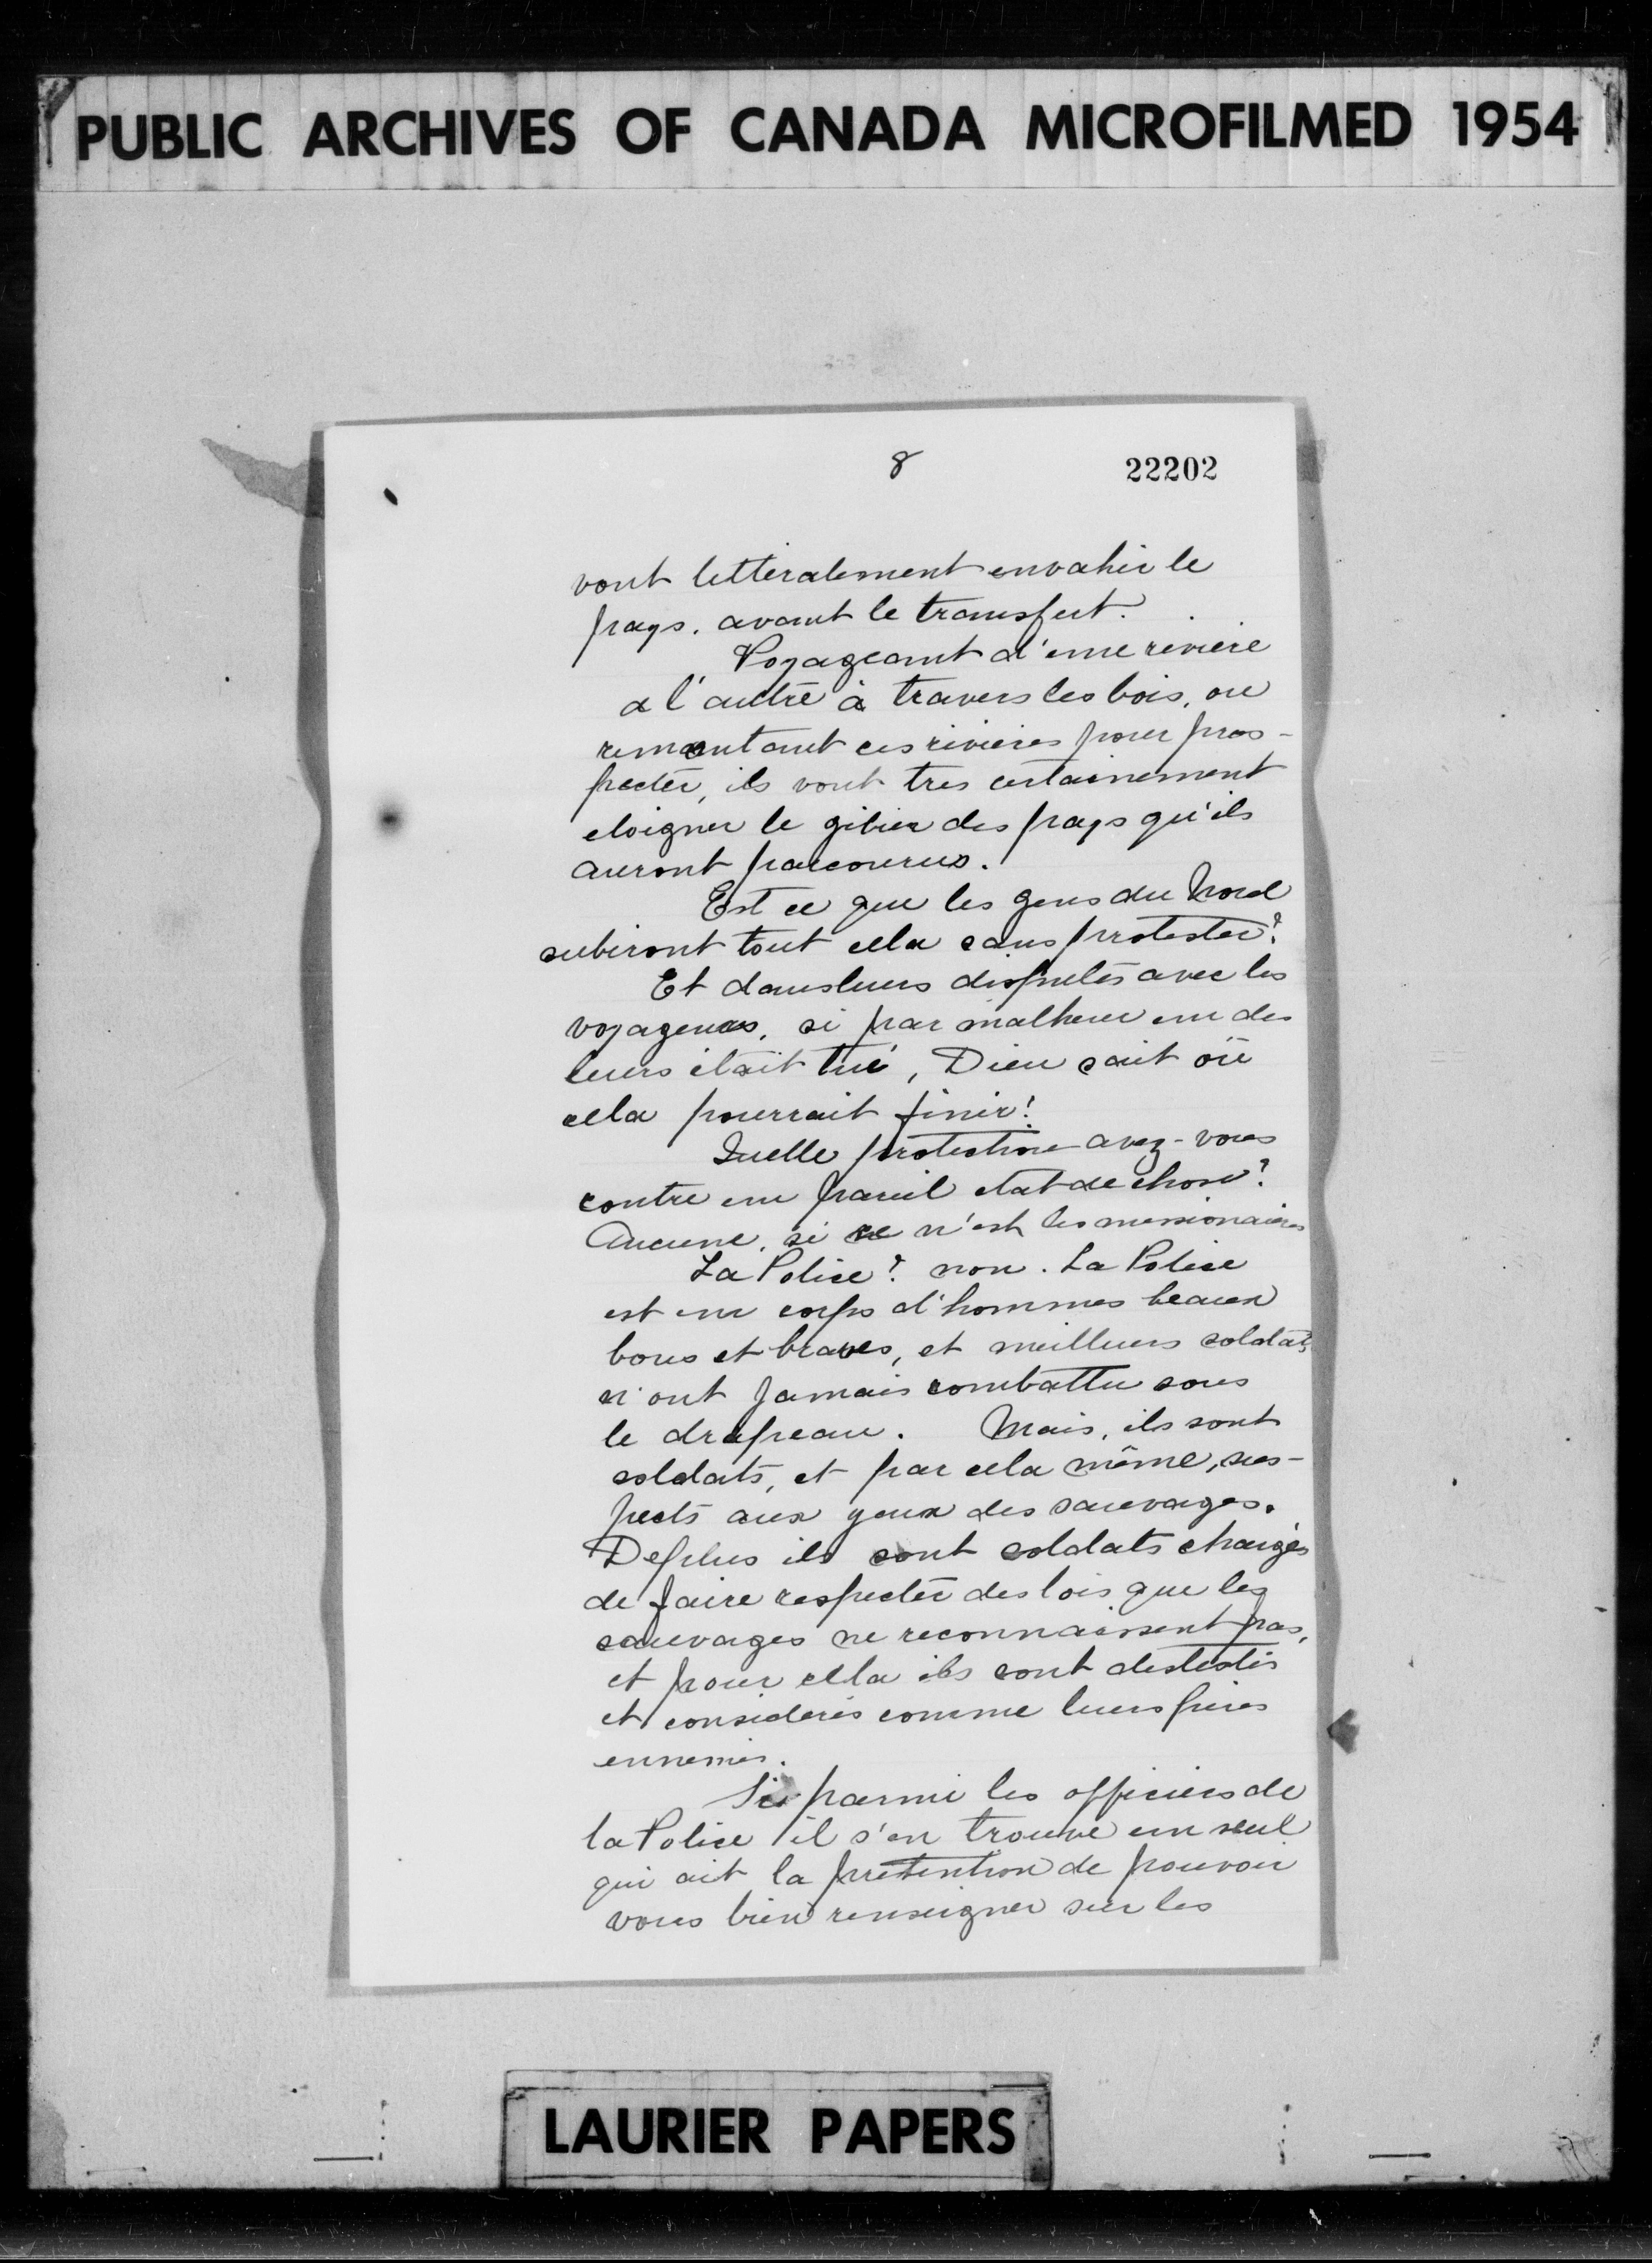 PUBLIC ARCHIVES OF CANADA MICROFILMED 1954
8 22202
vont litteralement envahir le
pays. avant le transfert.
Voyageant d'une riviere
a l'autre à travers les bois, ou
remontant ces rivieres pour pros-
pecter, ils vont tres certainement
eloigner le gibier des pays qu'ils
auront parcourus.
Est ce que les gens du Nord
subiront tout cela sans protester?
Et dans leurs disputes avec les
voyageurs, si par malheur un des
leurs était tué, Dieu sait où
cela pourrait finir!
Quelle protection avez-vous
contre un pareil etat de chose?
Aucune, si ce n'est les missionaires
La Police? non. La Police
est un corps d'hommes beaux
bons et braves, et meilleurs soldats
n'ont jamais combattu sous
le drapeau. Mais, ils sont
soldats, et par cela même, sus-
pects aux yeux des sauvages.
De plus ils sont soldats chargés
de faire respecter des lois que les
sauvages ne reconnaissent pas,
et pour cela ils sont destestés
et considerés comme leurs pires
ennemis.
Si parmi les officiers de
la Police il s'en trouve un seul
qui ait la prétention de pouvoir
vous bien renseigner sur les
LAURIER PAPERS